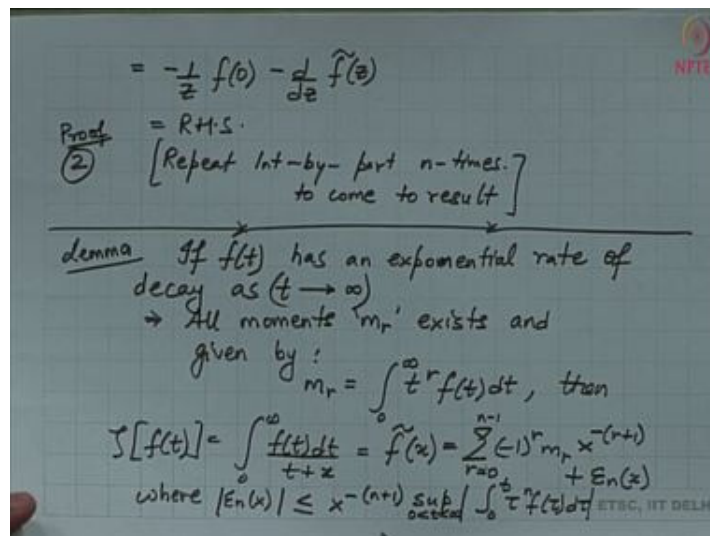 = -1/z f(0) - d/dz f̃(z)
NPTEL
Proof = R.H.S.
② [Repeat Int-by-part n-times.
to come to result]
Lemma If f(t) has an exponential rate of
decay as (t → ∞)
⇒ All moments 'mᵣ' exists and
given by :
mᵣ = ∫₀^∞ tʳ f(t)dt, then
ζ[f(t)] = ∫₀^∞ f(t)dt/(t+x) = f̃(x) = Σ_{r=0}^{n-1} (-1)ʳ mᵣ x^{-(r+1)}
+ εn(x)
where |εn(x)| ≤ x^{-(n+1)} sup_{0<t<∞} |∫₀^t τⁿ f(τ)dτ|
ETSC, IIT DELH